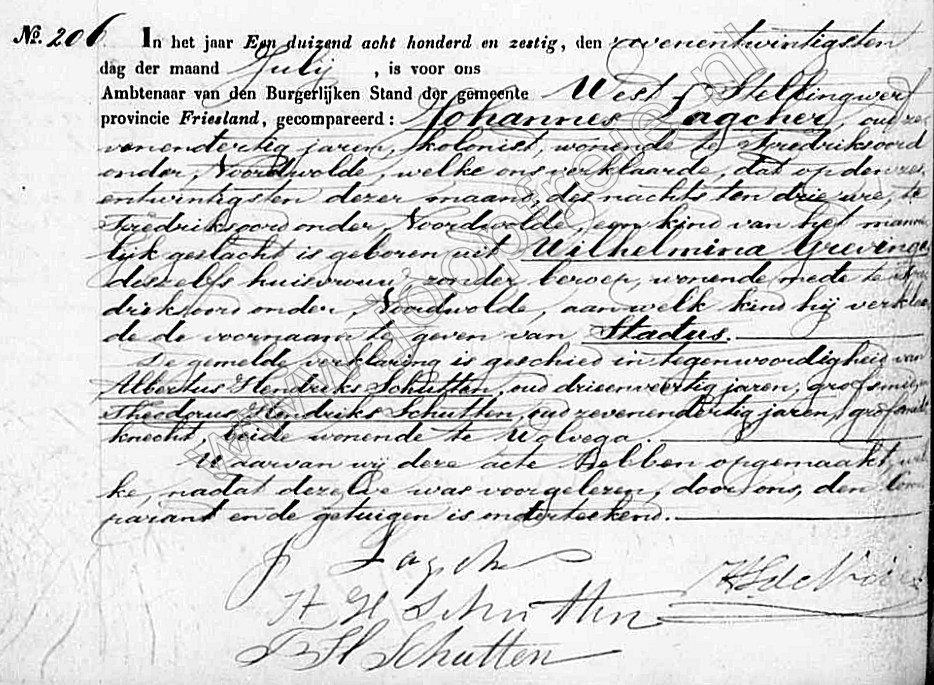 No. 206. In het jaar Een duizend acht honderd en zestig, den zevenentwintigsten
dag der maand Julij, is voor ons
Ambtenaar van den Burgerlijken Stand der gemeente West Stellingwerf
provincie Friesland, gecompareerd: Johannes Lagcher, oud ze-
venendertig jaren, kolonist, wonende te Fredriksoord
onder Noordwolde, welke ons verklaarde, dat op den zes-
entwintigsten dezer maand, des nachts ten drie ure, te
Fredriksoord onder Noordwolde, een kind van het manne-
lijk geslacht is geboren uit Wilhelmina Grevinga
deszelfs huisvrouw, zonder beroep, wonende mede te Fre-
driksoord onder Noordwolde, aan welk kind hij verklaar-
de de voornaam te geven van Stadus.
De gemelde verklaring is geschied in tegenwoordigheid van
Albertus Hendriks Schutten, oud drieenveertig jaren, grofsmid, en
Theodorus Hendriks Schutten, oud zevenendertig jaren, grofsmids
knecht, beide wonende te Wolvega.
Waarvan wij deze acte hebben opgemaakt, wel-
ke, nadat dezelve was voorgelezen, door ons, den com-
parant en de getuigen is onderteekend.
J Lagcher
A H Schutten
T H Schutten
www.joopsfreije.nl